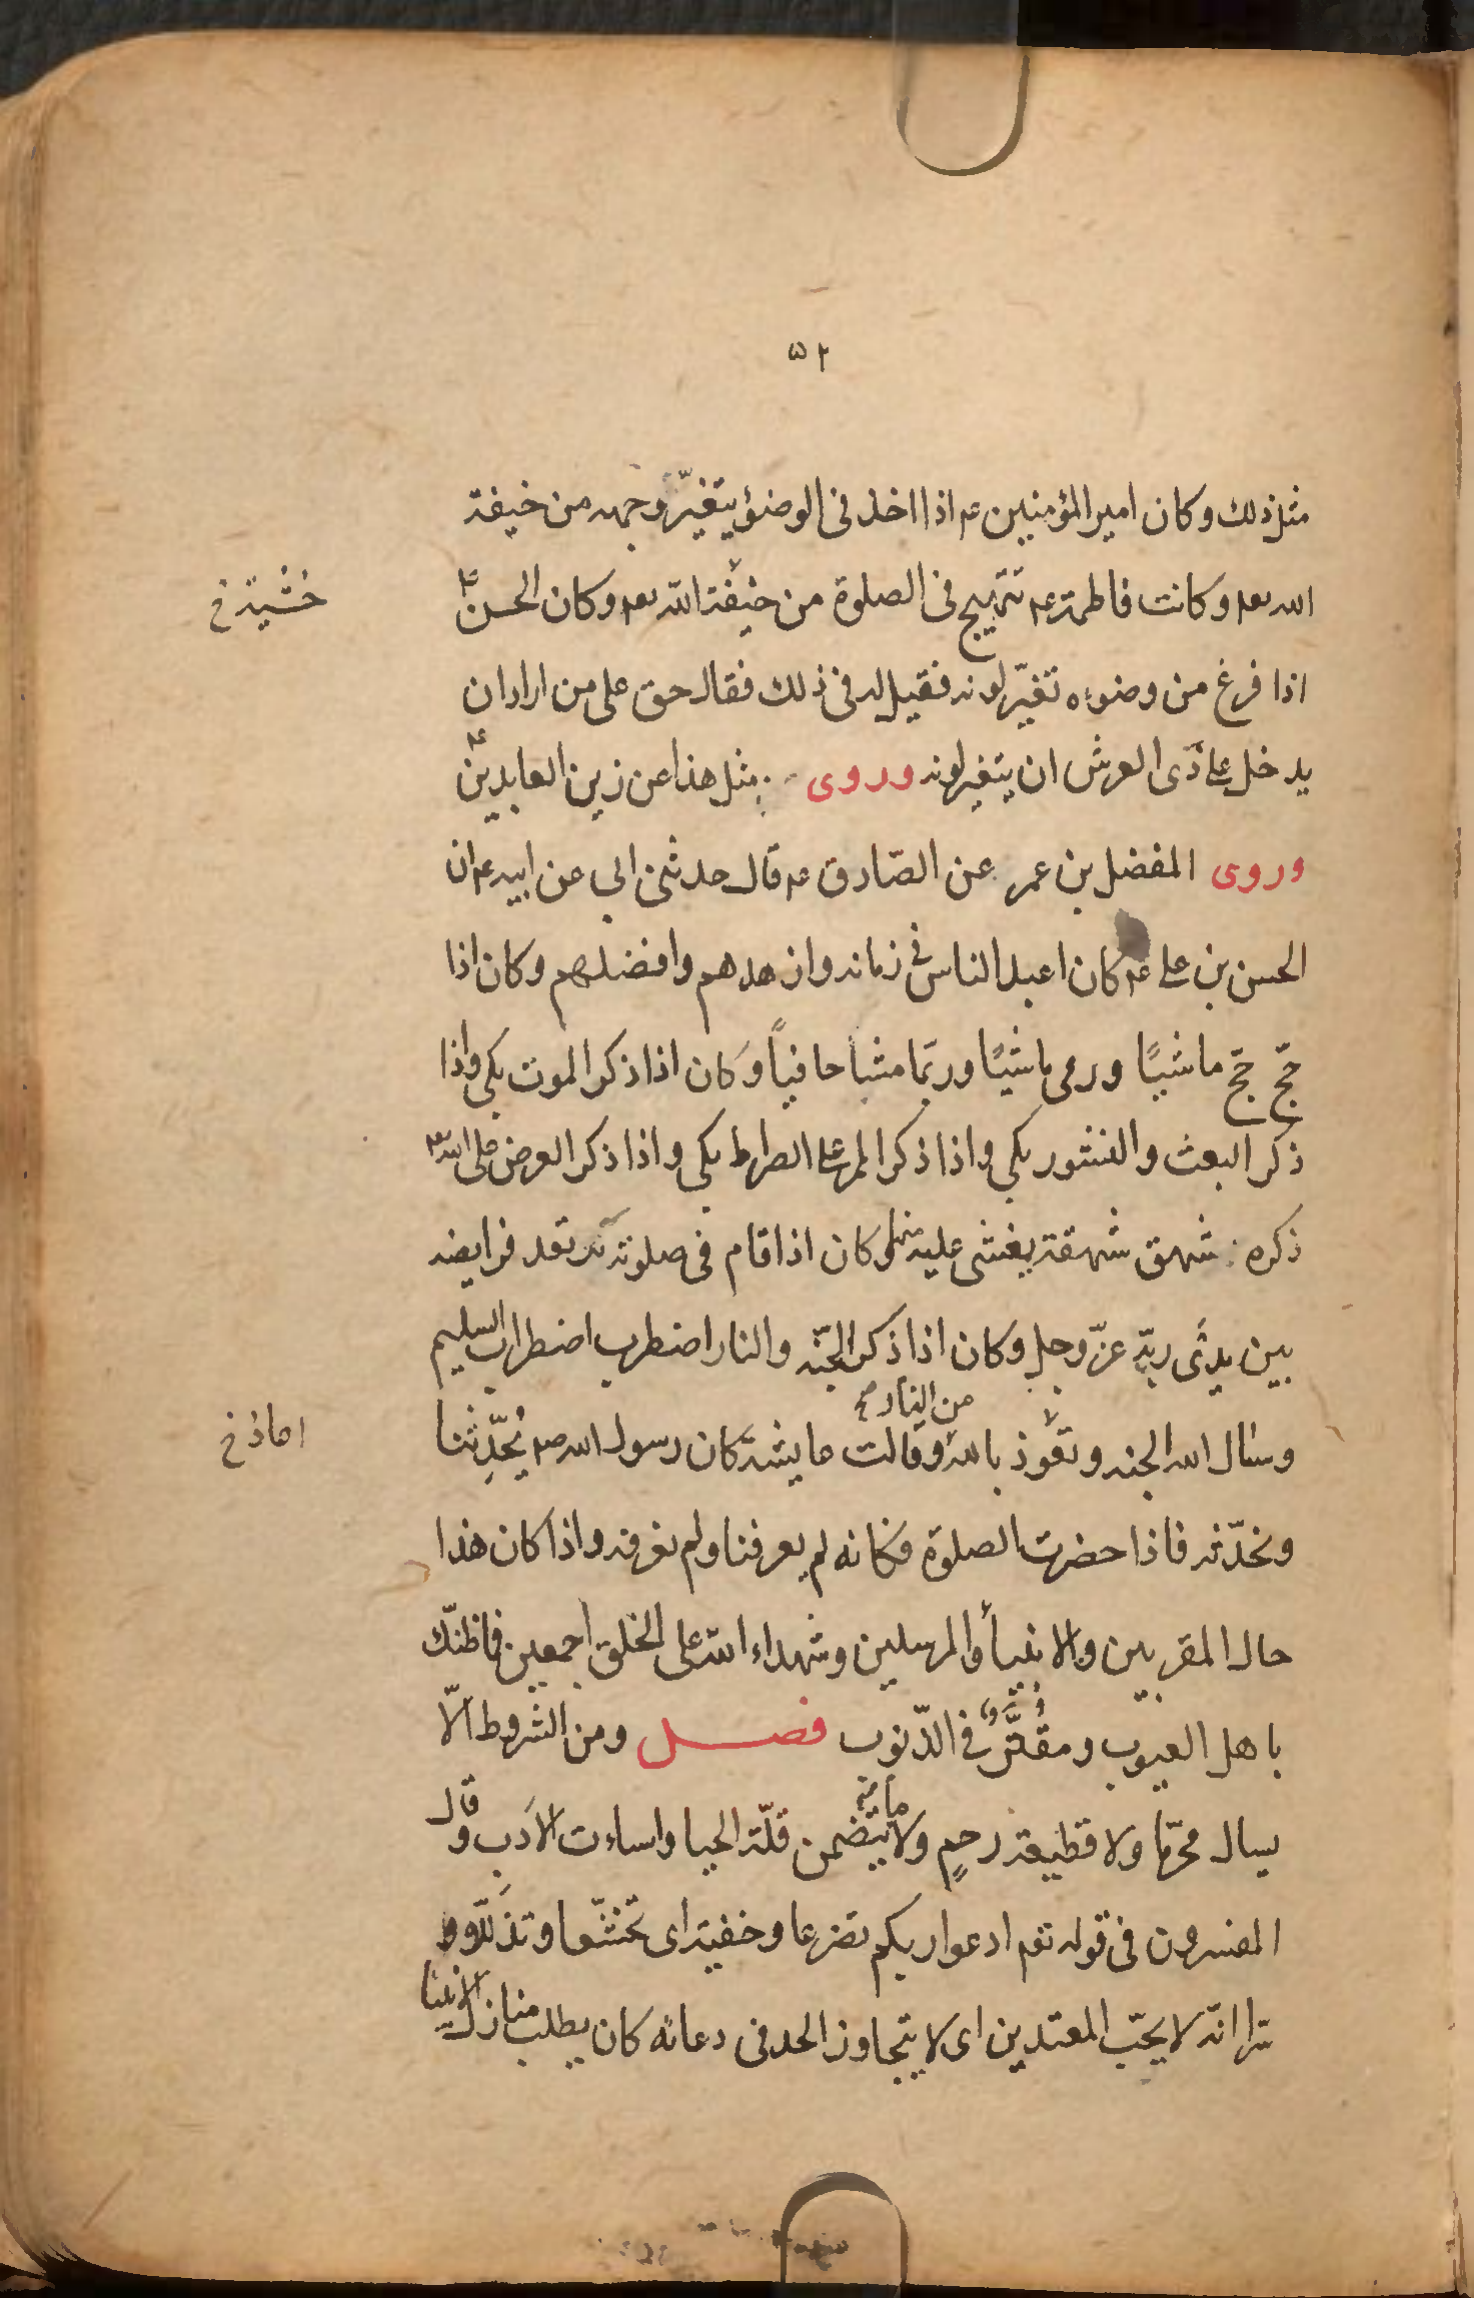 ٥٢
مثل ذلك وكان امير المؤمنين ع اذا اخذ فى الوضؤ يتغيّر وجهه من خيفة
الله تعه وكانت فاطمة ع تنهج فى الصلوة من خيفة الله تعه وكان الحسن ع
خشية خ
اذا فرغ من وضوءه تغيّر لونه فقيل له فى ذلك فقال حق على من اراد ان
يدخل على ذى العرش ان يتغير لونه وروى مثل هذا عن زين العابدين ع
وروى المفضل بن عمر عن الصّادق ع قال حدثنى ابى عن ابيه ع ان
الحسن بن على ع كان اعبد الناس فى زمانه وازهدهم وافضلهم وكان اذا
حجّ حجّ ماشيًا ورمى ماشيًا وربّما مشيا حافياً وكان اذا ذكر الموت بكى واذا
ذكر البعث والنشور بكى واذا ذكر الممر على الصراط بكى واذا ذكر العرض على الله تع
ذكره شهق شهقة يغشى عليه منها وكان اذا قام فى صلوته ترتعد فرايضه
بين يدى ربّه عزّ وجل وكان اذا ذكر الجنّه والنار اضطرب اضطراب السليم
وسئال الله الجنه وتعوّذ بالله من النار وقالت عايشة كان رسول الله ص يُحدِّثنا
اماذ خ
ونحدّثه فاذا حضرت الصلوة فكانه لم يعرفنا ولم نعرفه واذا كان هذا
حال المقربين والانبيأ والمرسلين وشهداء الله على الخلق اجمعين فماظنّك
باهل العيوب و فى الذّنوب فصل ومن الشروط الّا
يسال محرّما ولا قطيعة رحمٍ ولا ما يتضمن قلّة الحيا واساءت الادب وقال
المفسرون فى قوله تعه ادعوا ربكم تضرعا وخفية اى تخشّعا وتذلّلا و
سرا انّه لا يحبّ المعتدين اى لا يتجاوز الحد فى دعائه كان يطلب منازل الانبيا